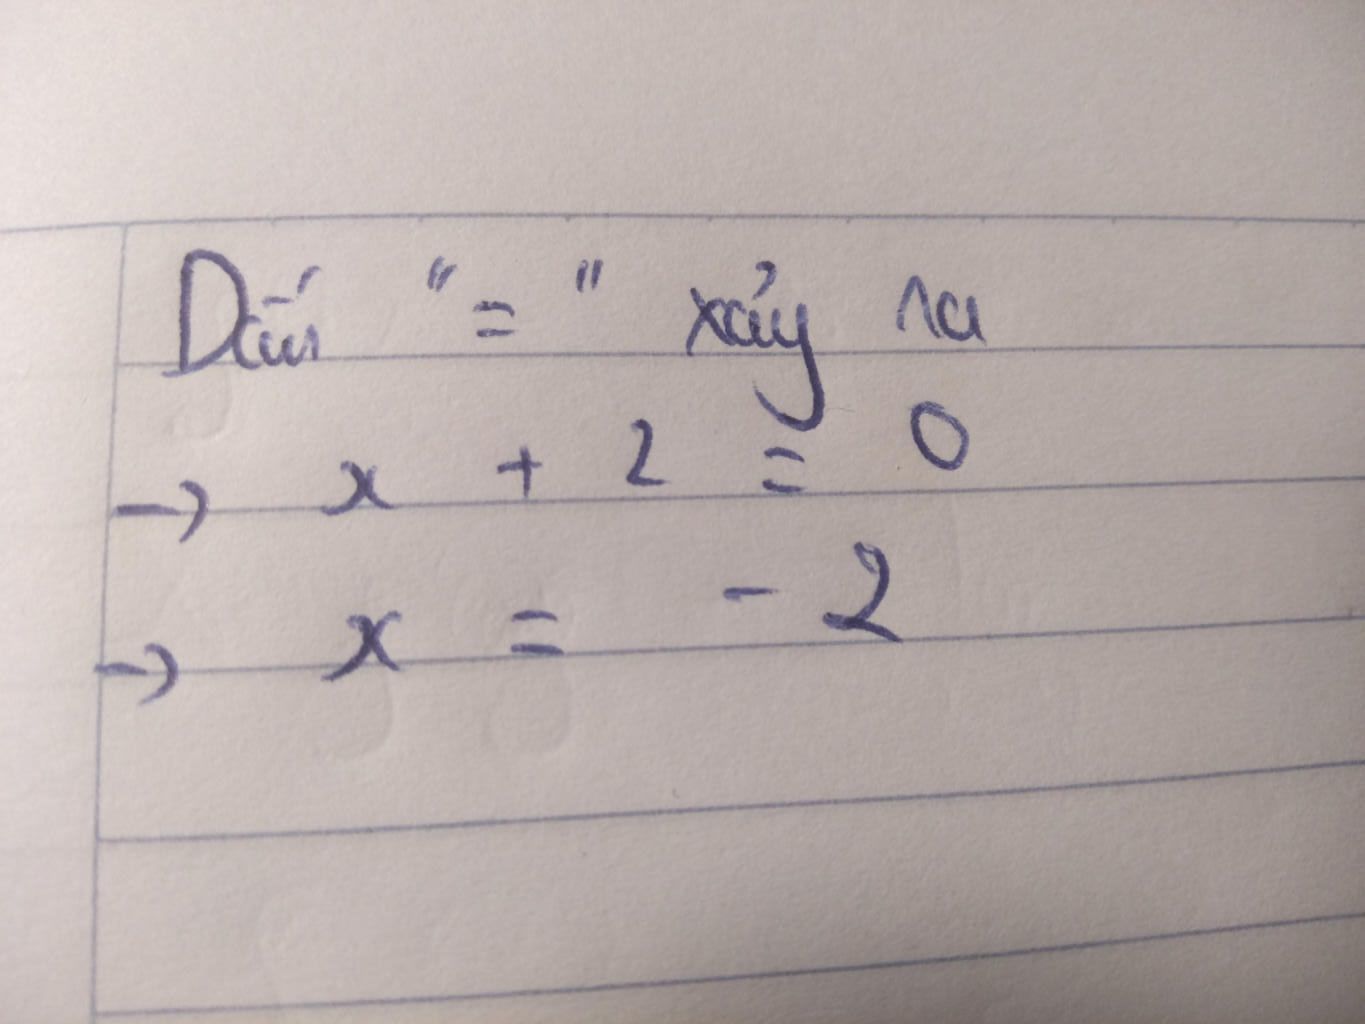 Dấu "=" xảy ra
→ x + 2 = 0
→ x = - 2